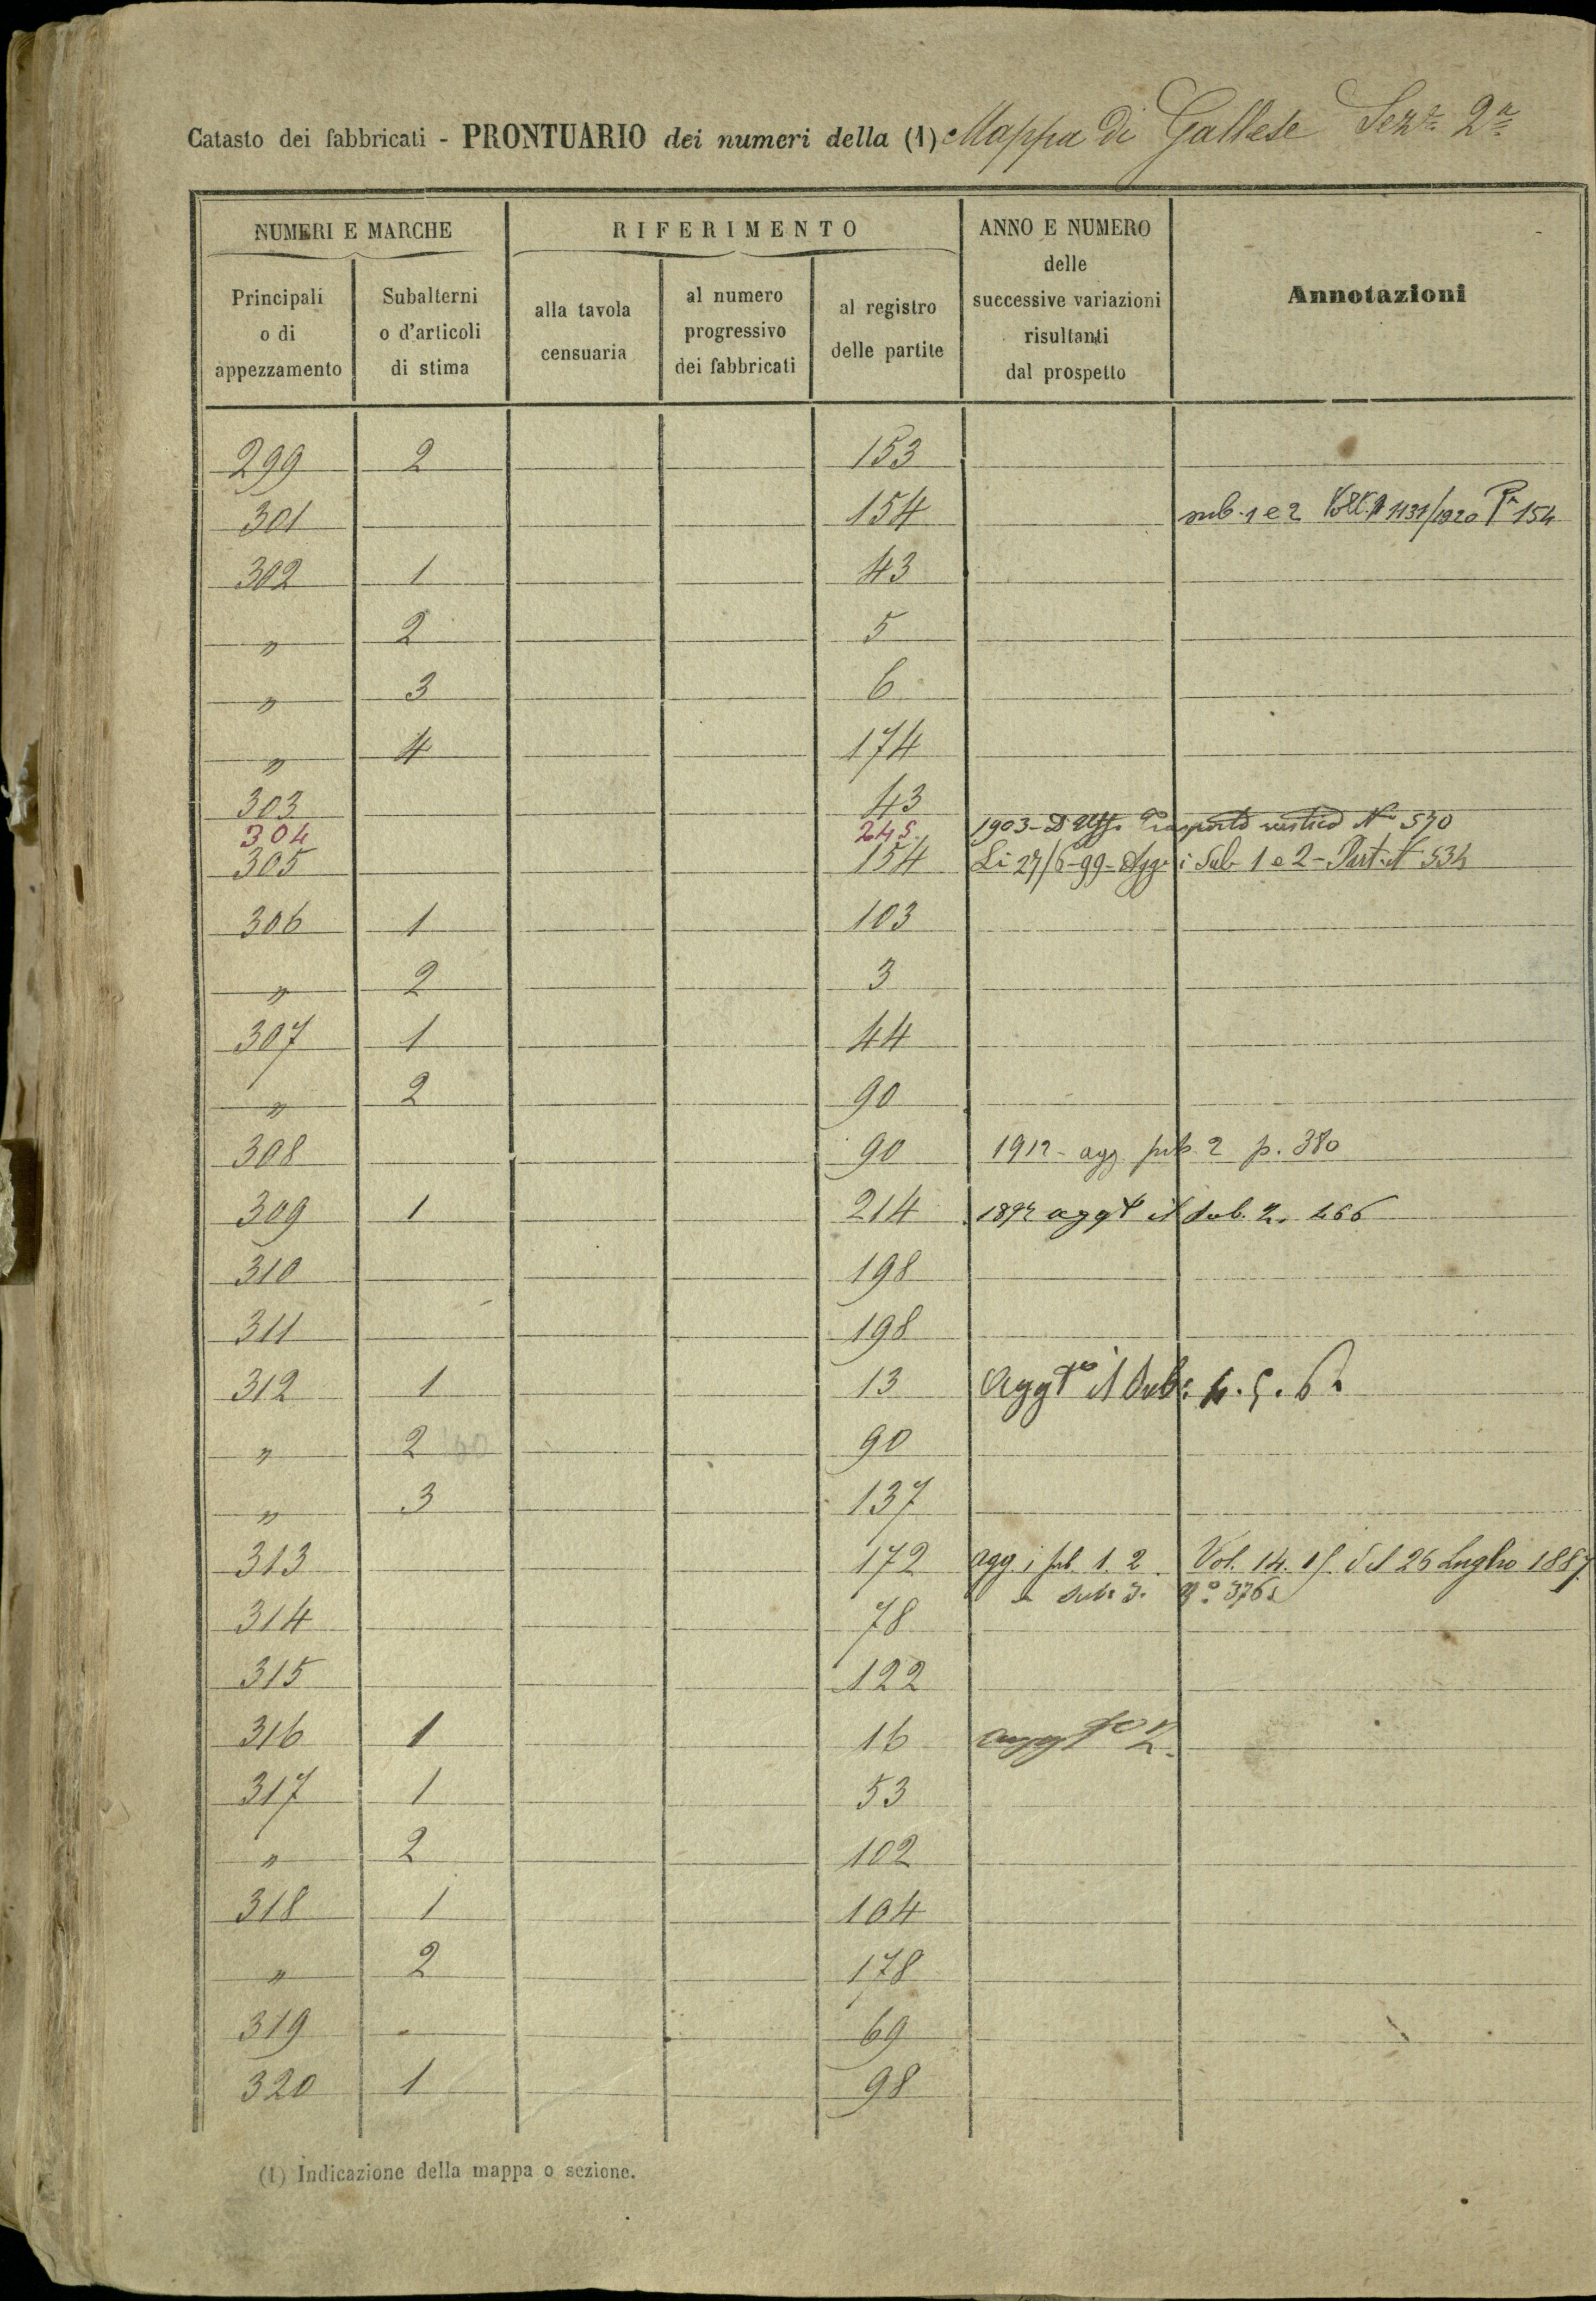 Catasto dei fabbricati - PRONTUARIO dei numeri della (1) Mappa di Gallese Sez.e 2a
NUMERI E MARCHE RIFERIMENTO ANNO E NUMERO
delle
successive variazioni
risultanti
dal prospetto
Annotazioni
Principali
o di
appezzamento
Subalterni
o d'articoli
di stima
alla tavola
censuaria
al numero
progressivo
dei fabbricati
al registro
delle partite
299 2 153
301 154 sub. 1 e 2 1131/1920 154
302 1 43
" 2 5
" 3 6
" 4 174
303 43
304 245. 1903 - D Uff. Trasporto rustico N. 570
305 154 Li 27/6-99- Agg. i Sub 1 e 2 - Part. N 534
306 1 103
" 2 3
307 1 44
" 2 90
308 90 1912 - agg sub. 2 p. 380
309 1 214 1897 aggto il sub. 2. 466
310 198
311 198
312 1 13 Aggto il Sub: 4. 5. 6.
" 2 90
" 3 137
313 172 agg. i sub. 1. 2 Vol. 14. 15. del 26 Luglio 1887
sub: 3. No 376
314 78
315 122
316 1 16 aggto 2.
317 1 53
" 2 102
318 1 104
" 2 178
319 69
320 1 98
(1) Indicazione della mappa o sezione.